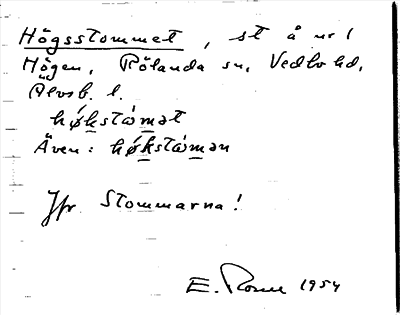 Högsstommet, st å nr 1
Högen, Rölanda sn, Vedbo hd,
Älvsb. l.
høkstómət
Även: høkstómən
Jfr Stommarna!
E. 1954